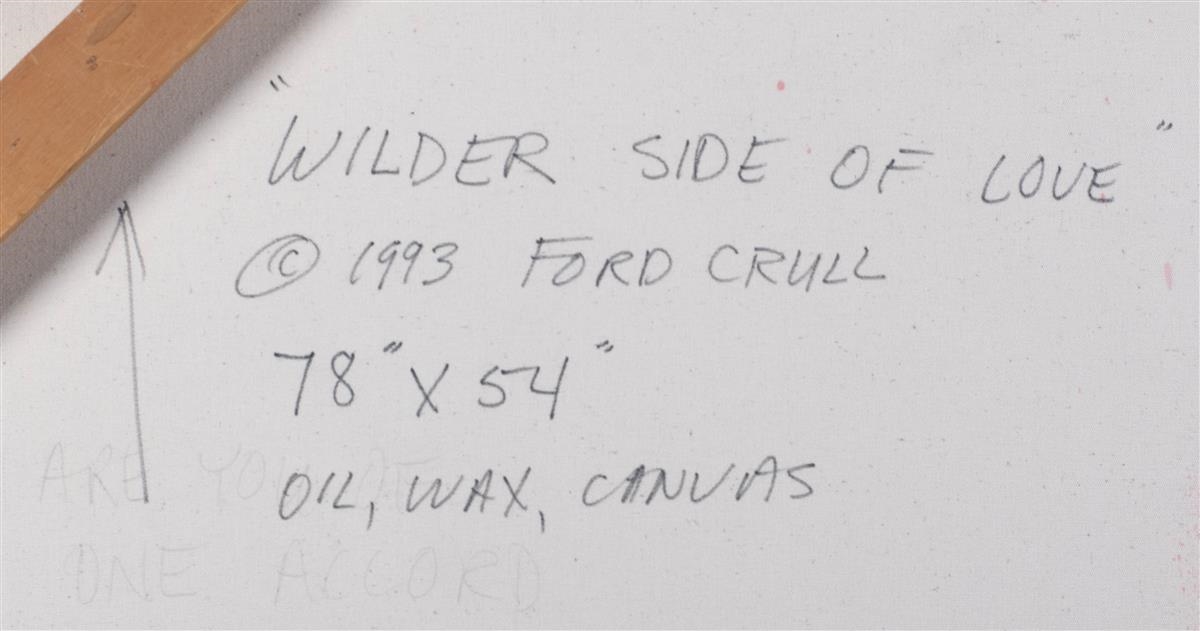 "WILDER SIDE OF LOVE"
© 1993 FORD CRULL
78" X 54"
OIL, WAX, CANVAS
ARE YOU OF
ONE ACCORD